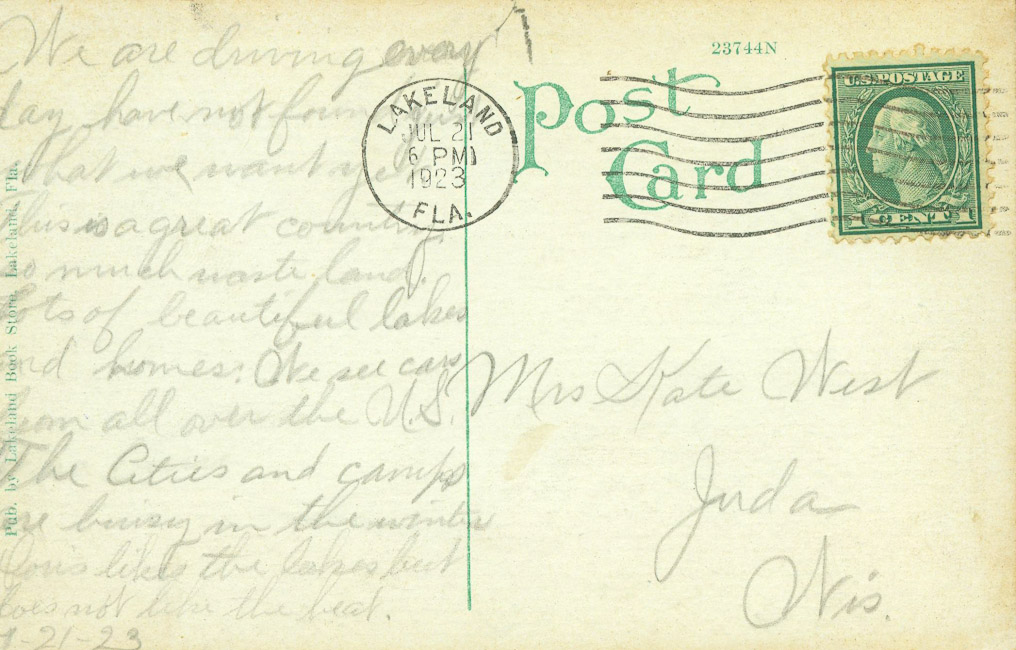 We are driving every
day have not found just
what we want yet
This is a great country.
So much waste land.
lots of beautiful lakes
and homes. We see cars
from all over the U.S.
The Cities and camps
are buisy in the winter
likes the lakes but
does not like the heat.
7-21-23
Pub. by Lakeland Book Store, Lakeland, Fla.
LAKELAND
JUL 21
6 PM
1923
FLA.
23744N
Post
Card
U.S. POSTAGE
1 CENT 1
Mrs Kate West
Juda
Wis.